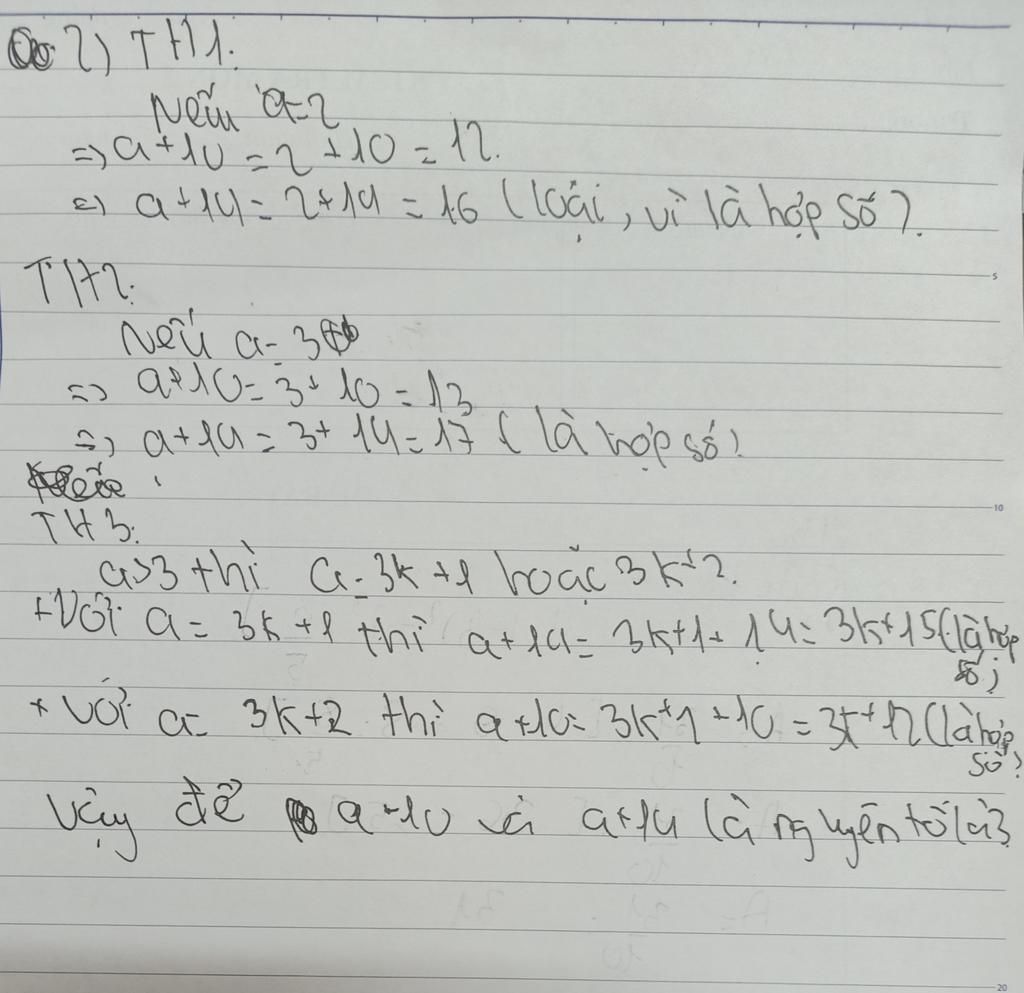 2) TH1:
Nếu a=2
=> a+10 = 2+10 = 12.
=> a+14 = 2+14 = 16 (loại, vì là hợp số).
TH2:
Nếu a = 3
=> a+10 = 3+10 = 13
=> a+14 = 3+14 = 17 (là hợp số)
TH3:
a>3 thì a = 3k+1 hoặc 3k+2.
+Với a = 3k+1 thì a+14 = 3k+1+14 = 3k+15 (là hợp
số)
+ Với a = 3k+2 thì a+10 = 3k+2+10 = 3k+12 (là hợp
số)
Vậy để a+10 và a+14 là nguyên tố là 3